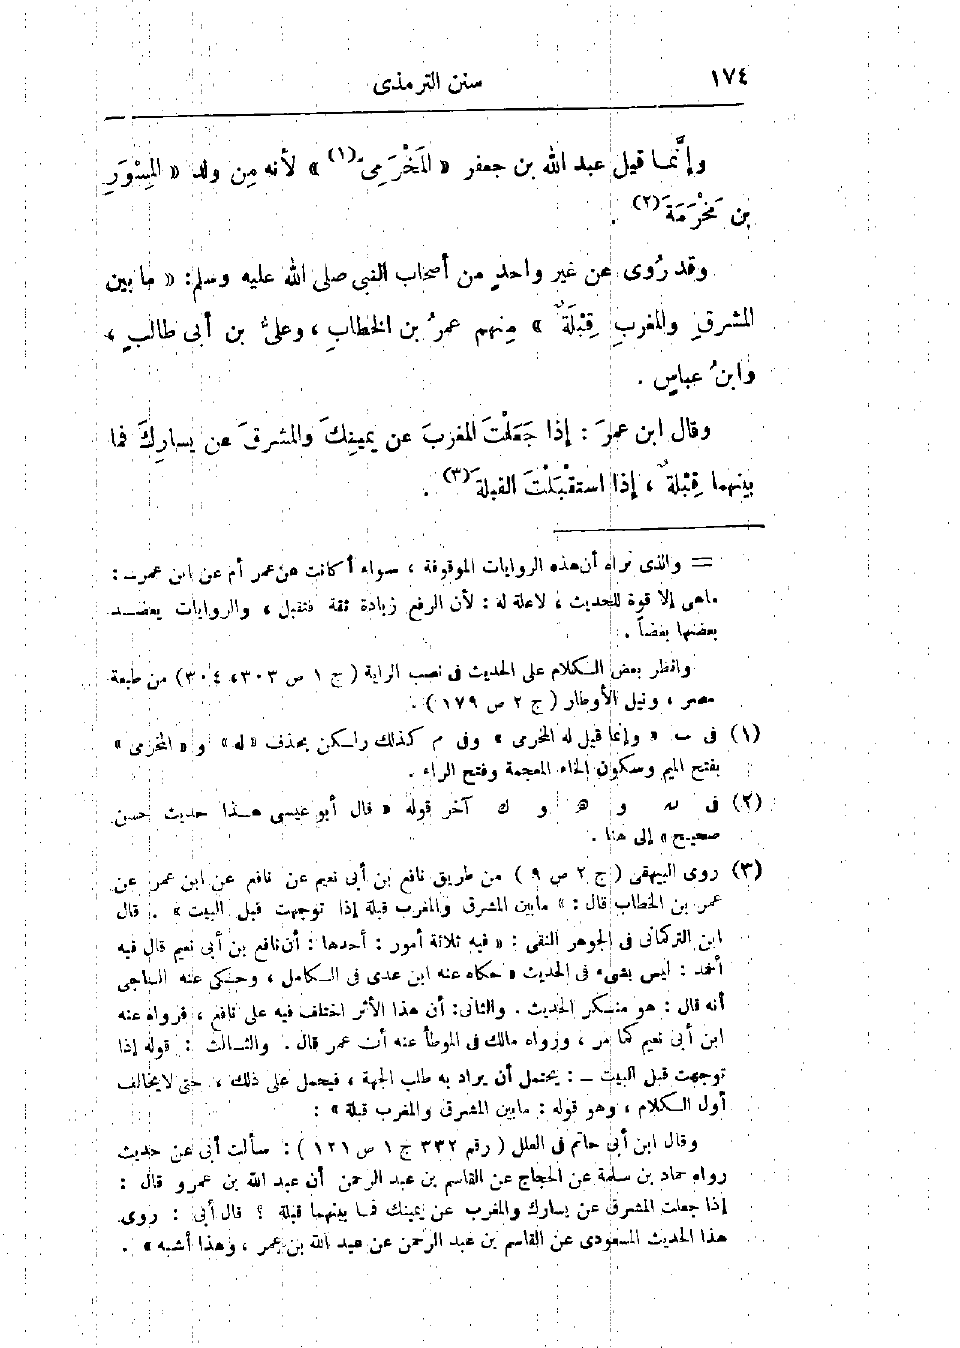 ١٧٤ سنن الترمذى
وإنَّما قيل عبد الله بن جعفر « المَخْرَمِىّ(١) » لأنه مِن ولد « المِسْوَرِ
بن مَخْرَمَةَ(٢) .
وقد رُوى عن غير واحدٍ من أصحاب النبى صلى الله عليه وسلم: « ما بين
المشرقِ والمغربِ قِبْلَةٌ » مِنهم عمرُ بن الخطابِ ، وعلىُّ بن أبى طالبٍ ،
وابنُ عباسٍ .
وقال ابن عمرَ : إذا جَعَلْتَ المغربَ عن يمينِكَ والمشرقَ عن يسارِكَ فما
بينهما قِبْلةٌ ، إذا استقْبَلْتَ القبلةَ(٣) .
= والذى نراه أن هذه الروايات الموقوفة ، سواء أكانت عن عمر أم عن ابن عمر ـ :
ماهى إلا قوة للحديث ، لاعلة له : لأن الرفع زيادة ثقة فتقبل ، والروايات يعضــد
بعضها بعضاً .
وانظر بعض الكلام على الحديث فى نصب الراية ( ج ١ ص ٣٠٣، ٣٠٤ ) من طبعة
مصر ، ونيل الأوطار ( ج ٢ ص ١٧٩ ) .
(١) فى ب « وإنما قيل له المخرمى » وفى م كذلك ولكن بحذف « له » و « المخرمى »
بفتح الميم وسكون الخاء المعجمة وفتح الراء .
(٢) فى نه و ه و ك آخر قوله « قال أبو عيسى هــذا حديث حسن
صحيح » إلى هنا .
(٣) روى البيهقى ( ج ٢ ص ٩ ) من طريق نافع بن أبى نعيم عن نافع عن ابن عمر عن
عمر بن الخطاب قال : « مابين المشرق والمغرب قبلة إذا توجهت قبل البيت » . قال
ابن التركمانى فى الجوهر النقى : « فيه ثلاثة أمور : أحدها : أن نافع بن أبى نعيم قال فيه
أحمد : ليس بشىء فى الحديث « حكاه عنه ابن عدى فى الكامل ، وحكى عنه الساجى
أنه قال : هو منكر الحديث . والثانى: أن هذا الأثر اختلف فيه على نافع ، فرواه عنه
ابن أبى نعيم كما مر ، ورواه مالك فى الموطأ عنه أن عمر قال . والثــالث : قوله إذا
توجهت قبل البيت ـ : يحتمل أن يراد به طلب الجهة ، فيحمل على ذلك ، حتى لايخالف
أول الكلام ، وهو قوله : مابين المشرق والمغرب قبلة » :
وقال ابن أبى حاتم فى العلل ( رقم ٣٣٢ ج ١ ص ١٢١ ) : سألت أبى عن حديث
رواه حماد بن سلمة عن الحجاج عن القاسم بن عبد الرحمن أن عبد الله بن عمرو قال :
إذا جعلت المشرق عن يسارك والمغرب عن يمينك فما بينهما قبلة ؟ قال أبى : روى
هذا الحديث المسعودى عن القاسم بن عبد الرحمن عن عبد الله بن عمر ، وهذا أشبه » .